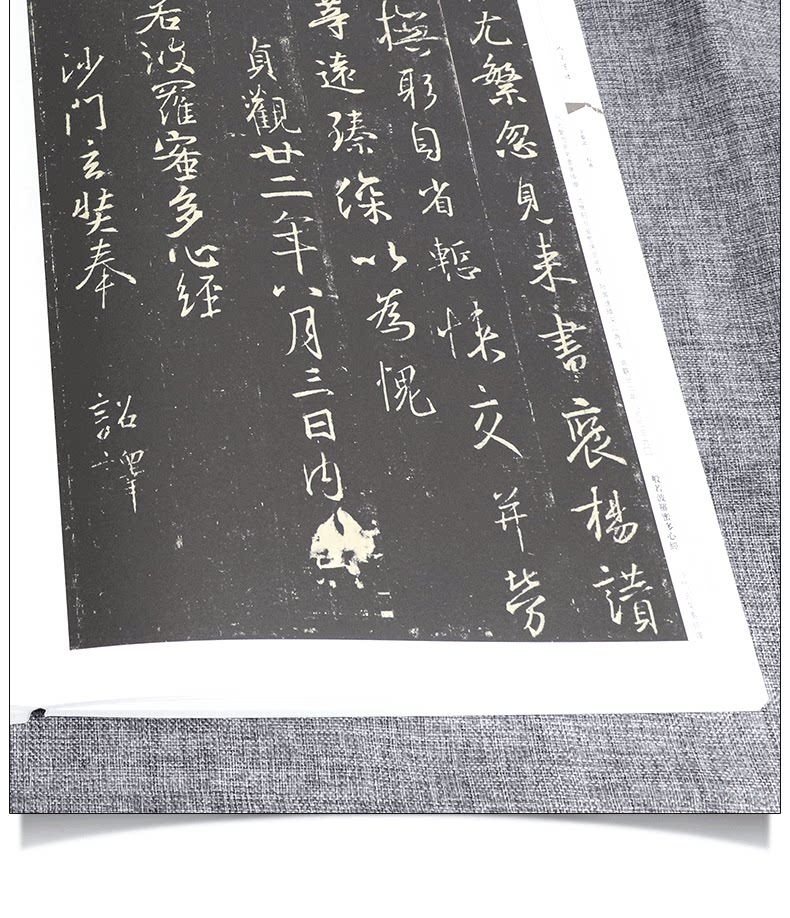 尤繁忽見来書褒楊讃
撫躬自省慙悚交并勞
等遠臻深以為愧
貞觀廿二年八月三日內
若波羅蜜多心經
沙門玄奘奉 詔譯
般若波羅蜜多心經